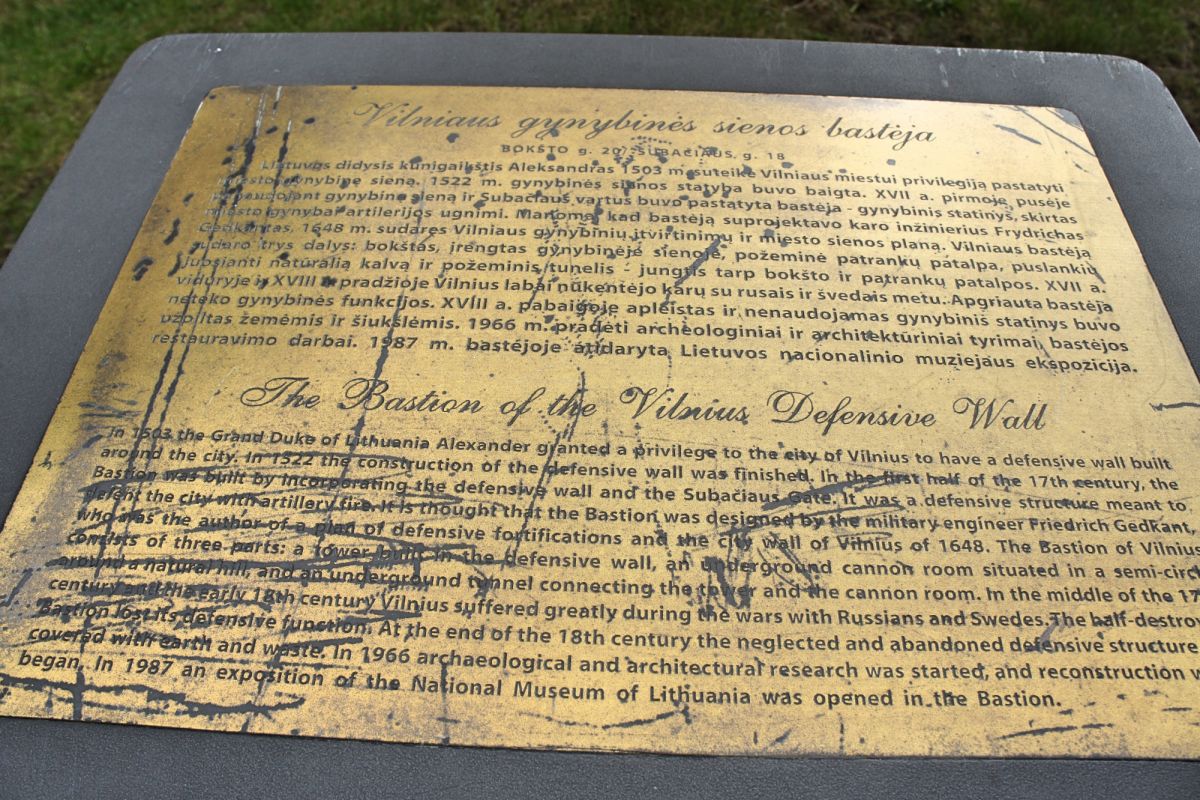 Vilniaus gynybinės sienos bastėja
BOKŠTO g. 20 / SUBAČIAUS g. 18
Lietuvos didysis kunigaikštis Aleksandras 1503 m. suteikė Vilniaus miestui privilegiją pastatyti
miesto gynybinę sieną. 1522 m. gynybinės sienos statyba buvo baigta. XVII a. pirmoje pusėje
panaudojant gynybinę sieną ir Subačiaus vartus buvo pastatyta bastėja - gynybinis statinys, skirtas
miesto gynybai artilerijos ugnimi. Manoma, kad bastėją suprojektavo karo inžinierius Frydrichas
Getkantas, 1648 m. sudaręs Vilniaus gynybinių įtvirtinimų ir miesto sienos planą. Vilniaus bastėją
sudaro trys dalys: bokštas, įrengtas gynybinėje sienoje, požeminė patrankų patalpa, puslankiu
juosianti natūralią kalvą ir požeminis tunelis - jungtis tarp bokšto ir patrankų patalpos. XVII a.
viduryje ir XVIII a. pradžioje Vilnius labai nukentėjo karų su rusais ir švedais metu. Apgriauta bastėja
neteko gynybinės funkcijos. XVIII a. pabaigoje apleistas ir nenaudojamas gynybinis statinys buvo
užpiltas žemėmis ir šiukšlėmis. 1966 m. pradėti archeologiniai ir architektūriniai tyrimai, bastėjos
restauravimo darbai. 1987 m. bastėjoje atidaryta Lietuvos nacionalinio muziejaus ekspozicija.
The Bastion of the Vilnius Defensive Wall
In 1503 the Grand Duke of Lithuania Alexander granted a privilege to the city of Vilnius to have a defensive wall built
around the city. In 1522 the construction of the defensive wall was finished. In the first half of the 17th century, the
Bastion was built by incorporating the defensive wall and the Subačiaus Gate. It was a defensive structure meant to
defent the city with artillery fire. It is thought that the Bastion was designed by the military engineer Friedrich Gedkant,
who was the author of a plan of defensive fortifications and the city wall of Vilnius of 1648. The Bastion of Vilnius
consists of three parts: a tower built in the defensive wall, an underground cannon room situated in a semi-circ
around a natural hill, and an underground tunnel connecting the tower and the cannon room. In the middle of the 17
century and the early 18th century Vilnius suffered greatly during the wars with Russians and Swedes. The half-destroy
Bastion lost its defensive function. At the end of the 18th century the neglected and abandoned defensive structure
covered with earth and waste. In 1966 archaeological and architectural research was started, and reconstruction w
began. In 1987 an exposition of the National Museum of Lithuania was opened in the Bastion.